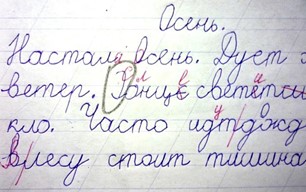 Осень.
Настала Осень. Дуст
ветер. Сонце свететсы
кло. Часто идтдожд
влесу стоит тишина